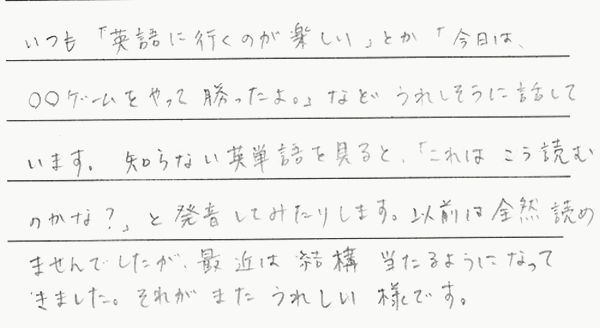 いつも「英語に行くのが楽しい」とか「今日は、
○○ゲームをやって勝ったよ。」などうれしそうに話して
います。知らない英単語を見ると、「これはこう読む
のかな?」と発音してみたりします。以前は全然読め
ませんでしたが、最近は結構当たるようになって
きました。それがまたうれしい様です。